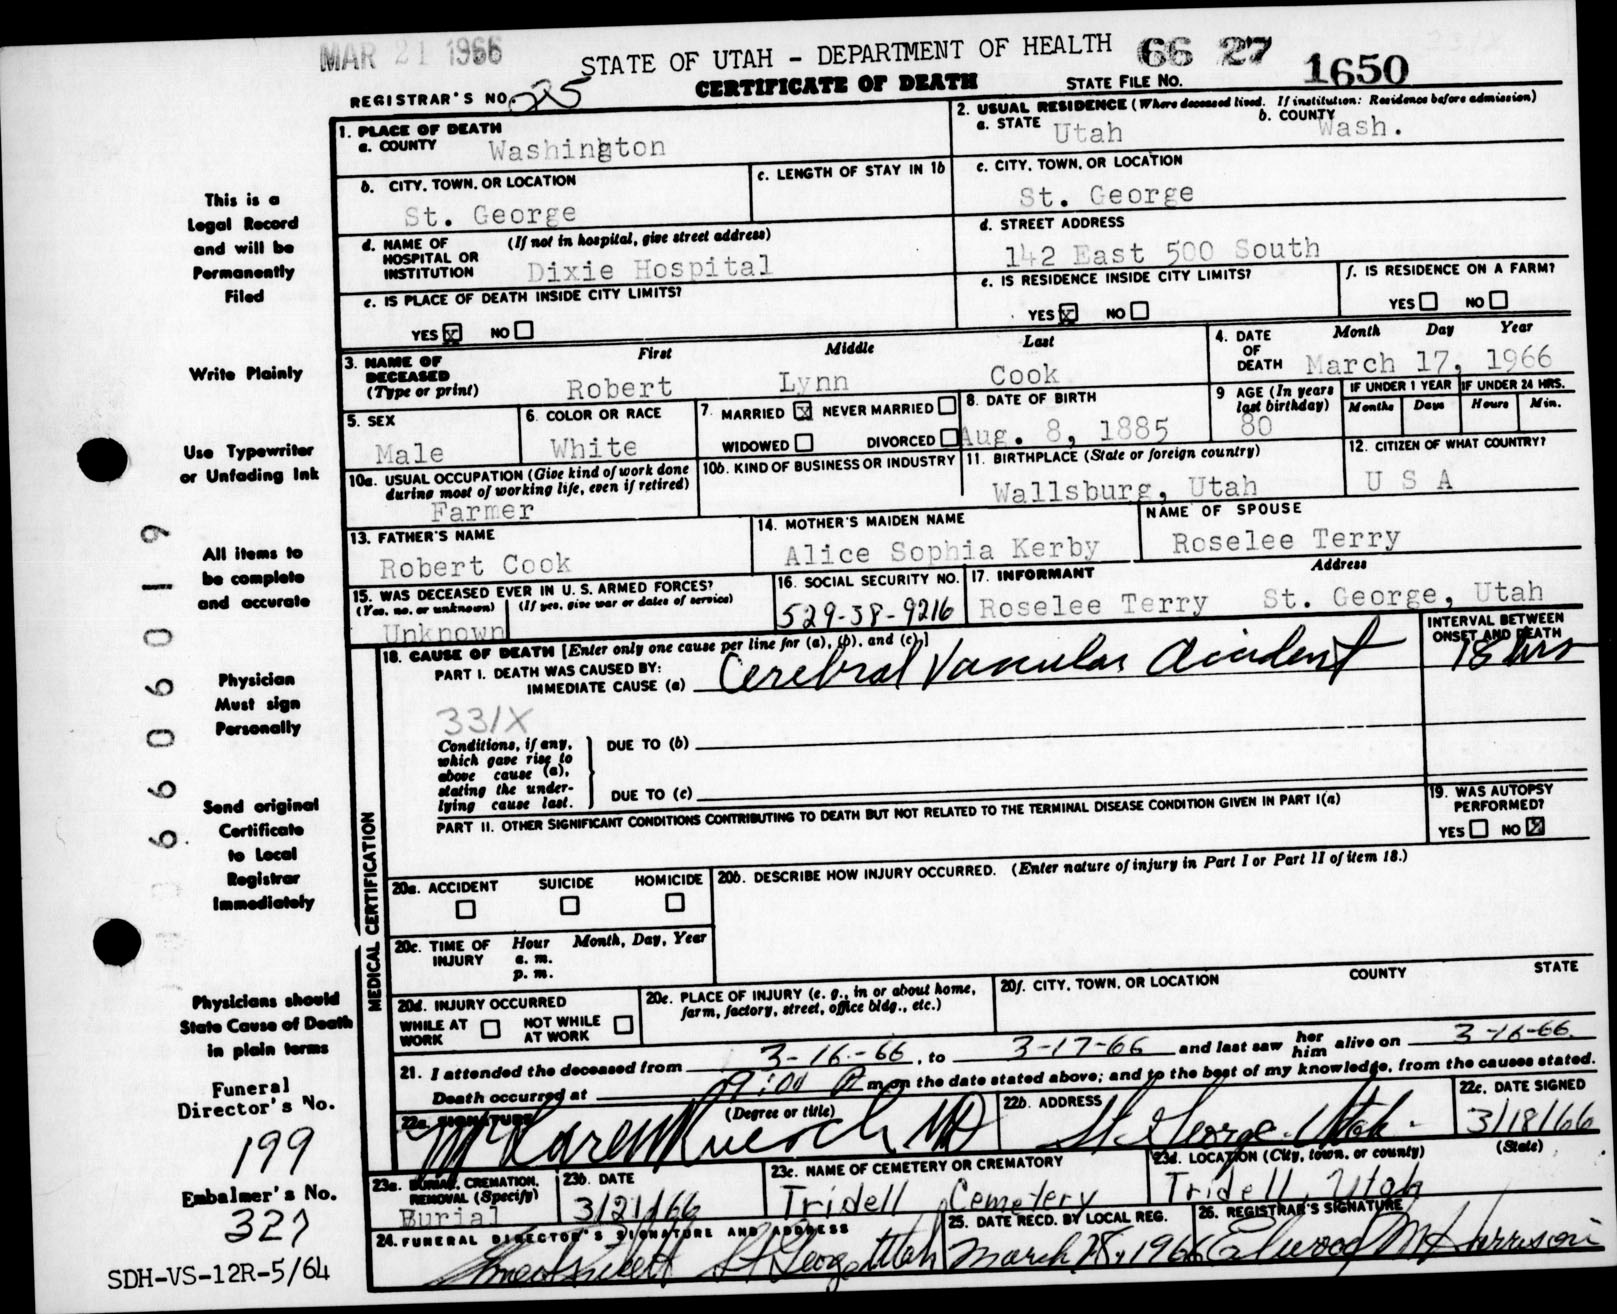 MAR 21 1966
STATE OF UTAH - DEPARTMENT OF HEALTH 66 27 1650
CERTIFICATE OF DEATH STATE FILE NO.
REGISTRAR'S NO.
1. PLACE OF DEATH
a. COUNTY Washington
2. USUAL RESIDENCE (Where deceased lived. If institution: Residence before admission)
a. STATE Utah b. COUNTY Wash.
b. CITY, TOWN, OR LOCATION St. George
c. LENGTH OF STAY IN 1b
c. CITY, TOWN, OR LOCATION
St. George
d. NAME OF HOSPITAL OR INSTITUTION (If not in hospital, give street address)
Dixie Hospital
d. STREET ADDRESS
142 East 500 South
e. IS PLACE OF DEATH INSIDE CITY LIMITS?
YES x NO
e. IS RESIDENCE INSIDE CITY LIMITS?
YES x NO
f. IS RESIDENCE ON A FARM?
YES NO
3. NAME OF DECEASED (Type or print)
First Middle Last
Robert Lynn Cook
4. DATE OF DEATH Month Day Year
March 17, 1966
5. SEX
Male
6. COLOR OR RACE
White
7. MARRIED x NEVER MARRIED
WIDOWED DIVORCED
8. DATE OF BIRTH
Aug. 8, 1885
9 AGE (In years last birthday)
80
IF UNDER 1 YEAR IF UNDER 24 HRS.
Months Days Hours Min.
10a. USUAL OCCUPATION (Give kind of work done during most of working life, even if retired)
Farmer
10b. KIND OF BUSINESS OR INDUSTRY
11. BIRTHPLACE (State or foreign country)
Wallsburg, Utah
12. CITIZEN OF WHAT COUNTRY?
U S A
13. FATHER'S NAME
Robert Cook
14. MOTHER'S MAIDEN NAME
Alice Sophia Kerby
NAME OF SPOUSE
Roselee Terry
15. WAS DECEASED EVER IN U. S. ARMED FORCES?
(Yes, no, or unknown) (If yes, give war or dates of service)
Unknown
16. SOCIAL SECURITY NO.
529-38-9216
17. INFORMANT Address
Roselee Terry St. George, Utah
18. CAUSE OF DEATH [Enter only one cause per line for (a), (b), and (c).]
PART I. DEATH WAS CAUSED BY:
IMMEDIATE CAUSE (a) Cerebral Vascular Accident
INTERVAL BETWEEN ONSET AND DEATH
18 hrs
331X
Conditions, if any, which gave rise to above cause (a), stating the underlying cause last.
DUE TO (b)
DUE TO (c)
PART II. OTHER SIGNIFICANT CONDITIONS CONTRIBUTING TO DEATH BUT NOT RELATED TO THE TERMINAL DISEASE CONDITION GIVEN IN PART I(a)
19. WAS AUTOPSY PERFORMED?
YES NO x
MEDICAL CERTIFICATION
20a. ACCIDENT SUICIDE HOMICIDE
20b. DESCRIBE HOW INJURY OCCURRED. (Enter nature of injury in Part I or Part II of item 18.)
20c. TIME OF INJURY Hour Month, Day, Year
a. m.
p. m.
20d. INJURY OCCURRED
WHILE AT WORK NOT WHILE AT WORK
20e. PLACE OF INJURY (e. g., in or about home, farm, factory, street, office bldg., etc.)
20f. CITY, TOWN, OR LOCATION COUNTY STATE
21. I attended the deceased from 3-16-66, to 3-17-66 and last saw her him alive on 3-16-66.
Death occurred at 9:00 P m on the date stated above; and to the best of my knowledge, from the causes stated.
22a. SIGNATURE (Degree or title)
MD
22b. ADDRESS
St. George, Utah.
22c. DATE SIGNED
3/18/66
23a. BURIAL, CREMATION, REMOVAL (Specify)
Burial
23b. DATE
3/21/66
23c. NAME OF CEMETERY OR CREMATORY
Tridell Cemetery
23d. LOCATION (City, town, or county) (State)
Tridell, Utah
24. FUNERAL DIRECTOR'S SIGNATURE AND ADDRESS
St George Utah
25. DATE RECD. BY LOCAL REG.
26. REGISTRAR'S SIGNATURE
Elwood M Harrison
This is a
Legal Record
and will be
Permanently
Filed
Write Plainly
Use Typewriter
or Unfading Ink
All items to
be complete
and accurate
Physician
Must sign
Personally
Send original
Certificate
to Local
Registrar
Immediately
Physicians should
State Cause of Death
in plain terms
Funeral
Director's No.
199
Embalmer's No.
327
SDH-VS-12R-5/64